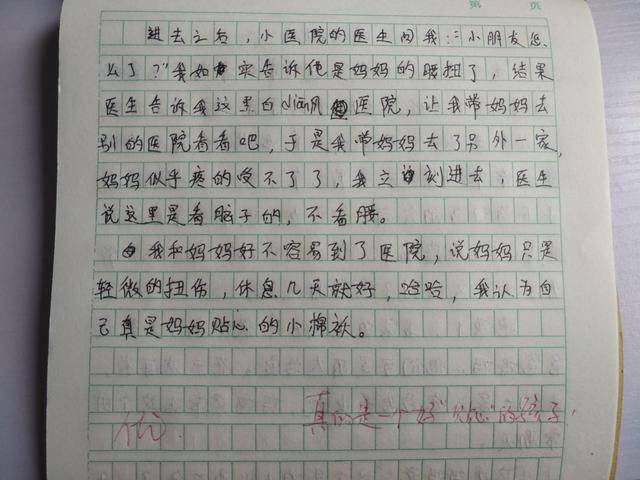 第 页
进去之后,小医院的医生问我:“小朋友怎
么了?”我如实告诉他是妈妈的腰扭了,结果
医生告诉我这里白diān风医院,让我带妈妈去
别的医院看看吧,于是我带妈妈去了另外一家,
妈妈似乎疼的受不了了,我立刻进去,医生
说这里是看脑子的,不看腰。
我和妈妈好不容易到了医院,说妈妈只是
轻微的扭伤,休息几天就好,哈哈,我认为自
己真是妈妈贴心的小棉袄。
真的是一个好“ ”的孩子,
优